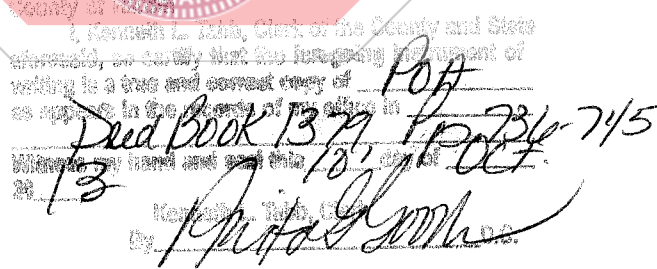 County of
I, Kenneth L. Tabb, Clerk of the County and State
aforesaid, so certify that the foregoing instrument of
writing is a true and correct copy of POA
as appears in the records of my office in
Deed Book 1379, Pp 736-745
Witness my hand and seal this 10, day of OCT.
20 13
Kenneth L. Tabb, Clerk
By D.C.